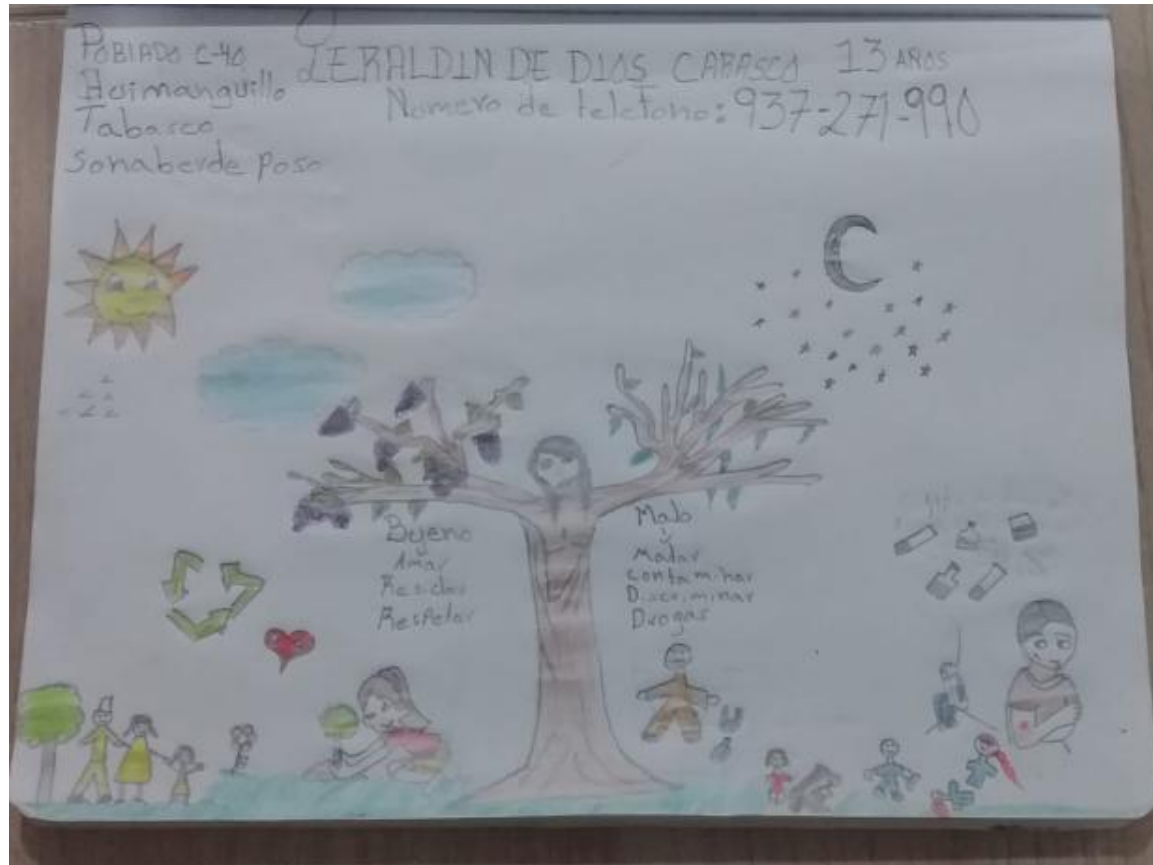 POBLADO C-40
Huimanguillo
Tabasco
Sonaberde Poso
JERALDIN DE DIOS CARASCO 13 AÑOS
Numero de telefono: 937-271-990
Bueno
y
Amar
Resiclar
Respetar
Malo
y
Matar
contaminar
Discriminar
Drogas